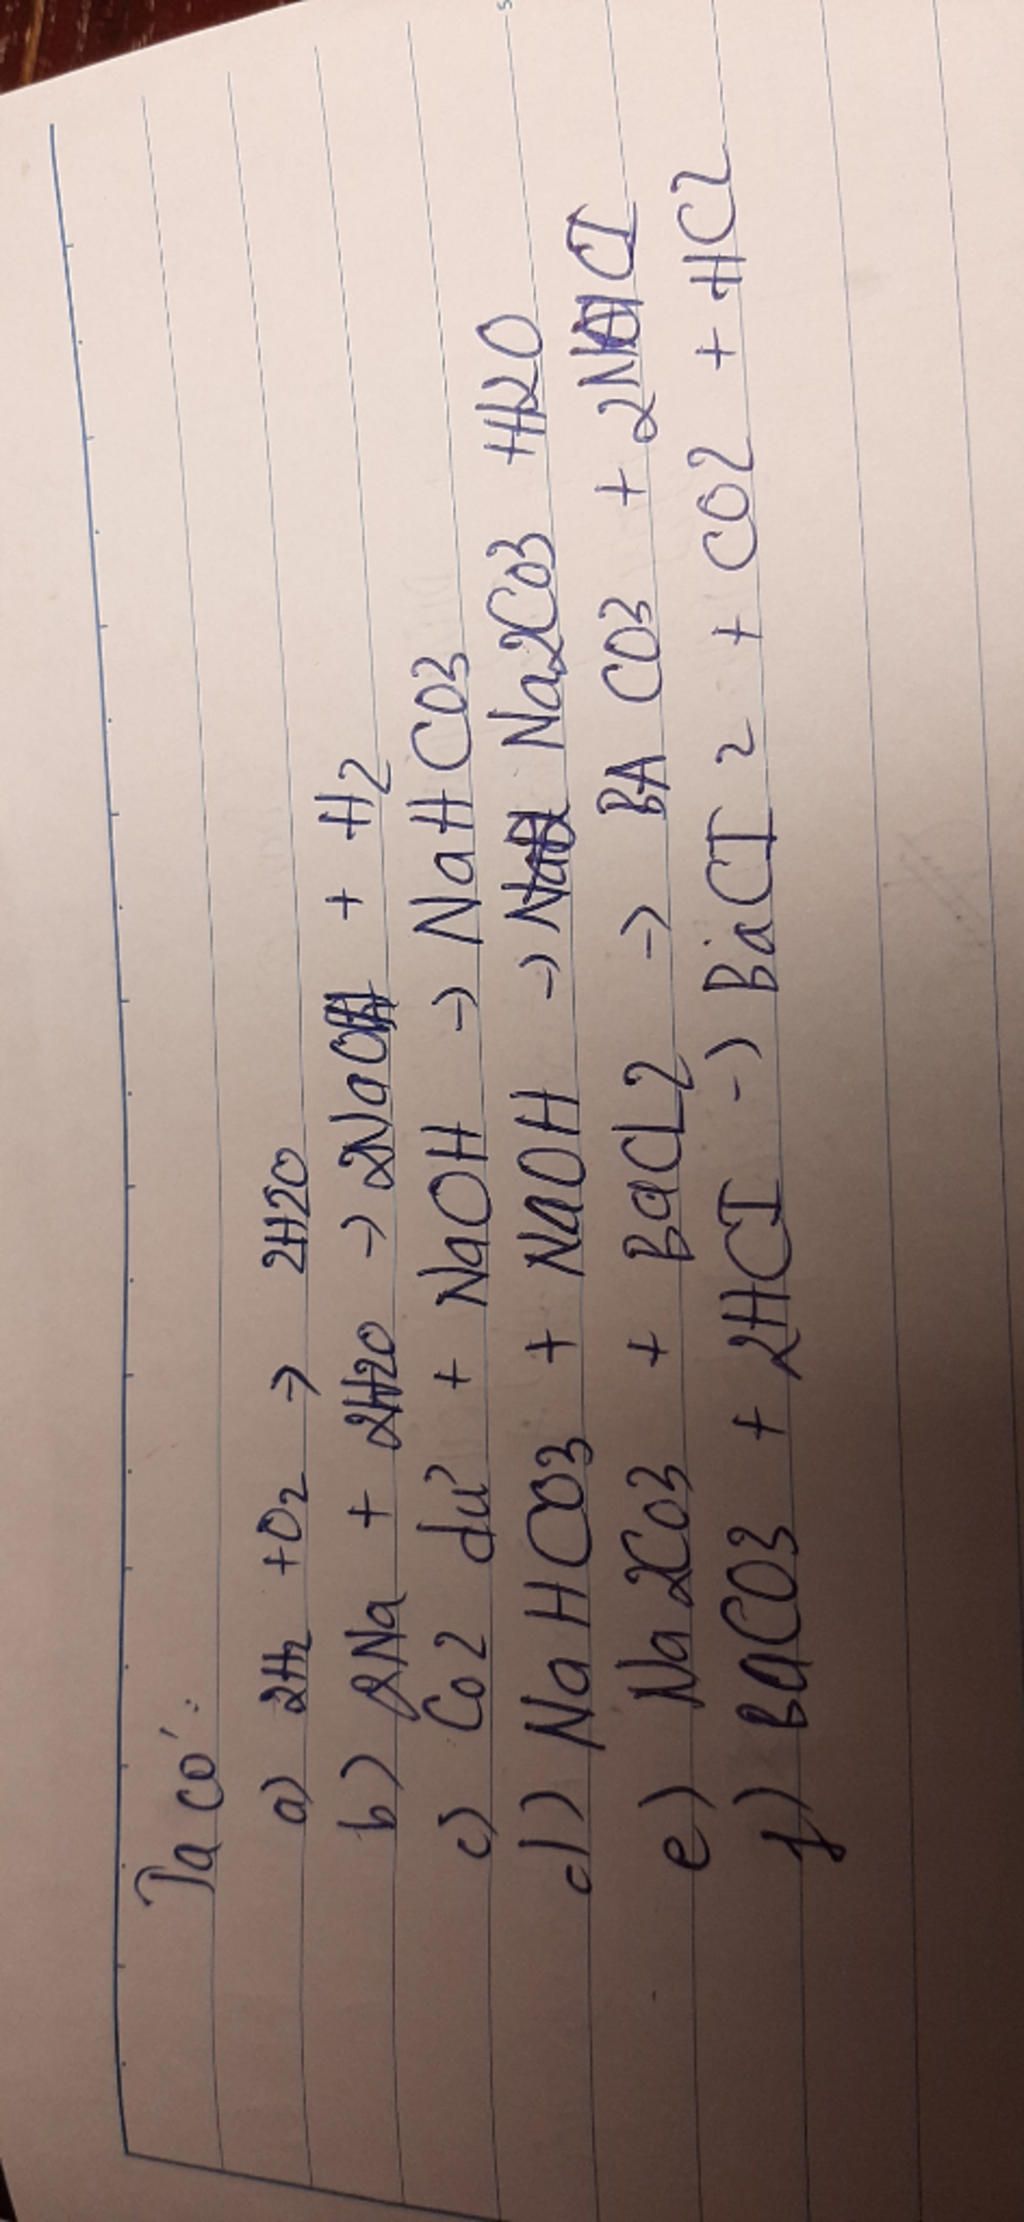 Ta có:
a) 2H2 + O2 → 2H2O
b) 2Na + 2H2O → 2NaOH + H2
c) Co2 dư + NaOH → NaHCO3
d) NaHCO3 + NaOH → Na2Co3 H2O
e) Na2Co3 + BaCL2 → BA CO3 + 2NaCI
f) BaCO3 + 2HCI → BaCI2 + CO2 + HCl